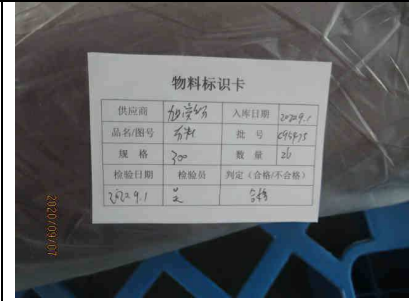 物料标识卡
供应商 入库日期 2020.9.1
品名/图号 布料 批 号
规 格 300 数 量 26
检验日期 检验员 判定（合格/不合格）
2020.9.1 合格
2020/09/07